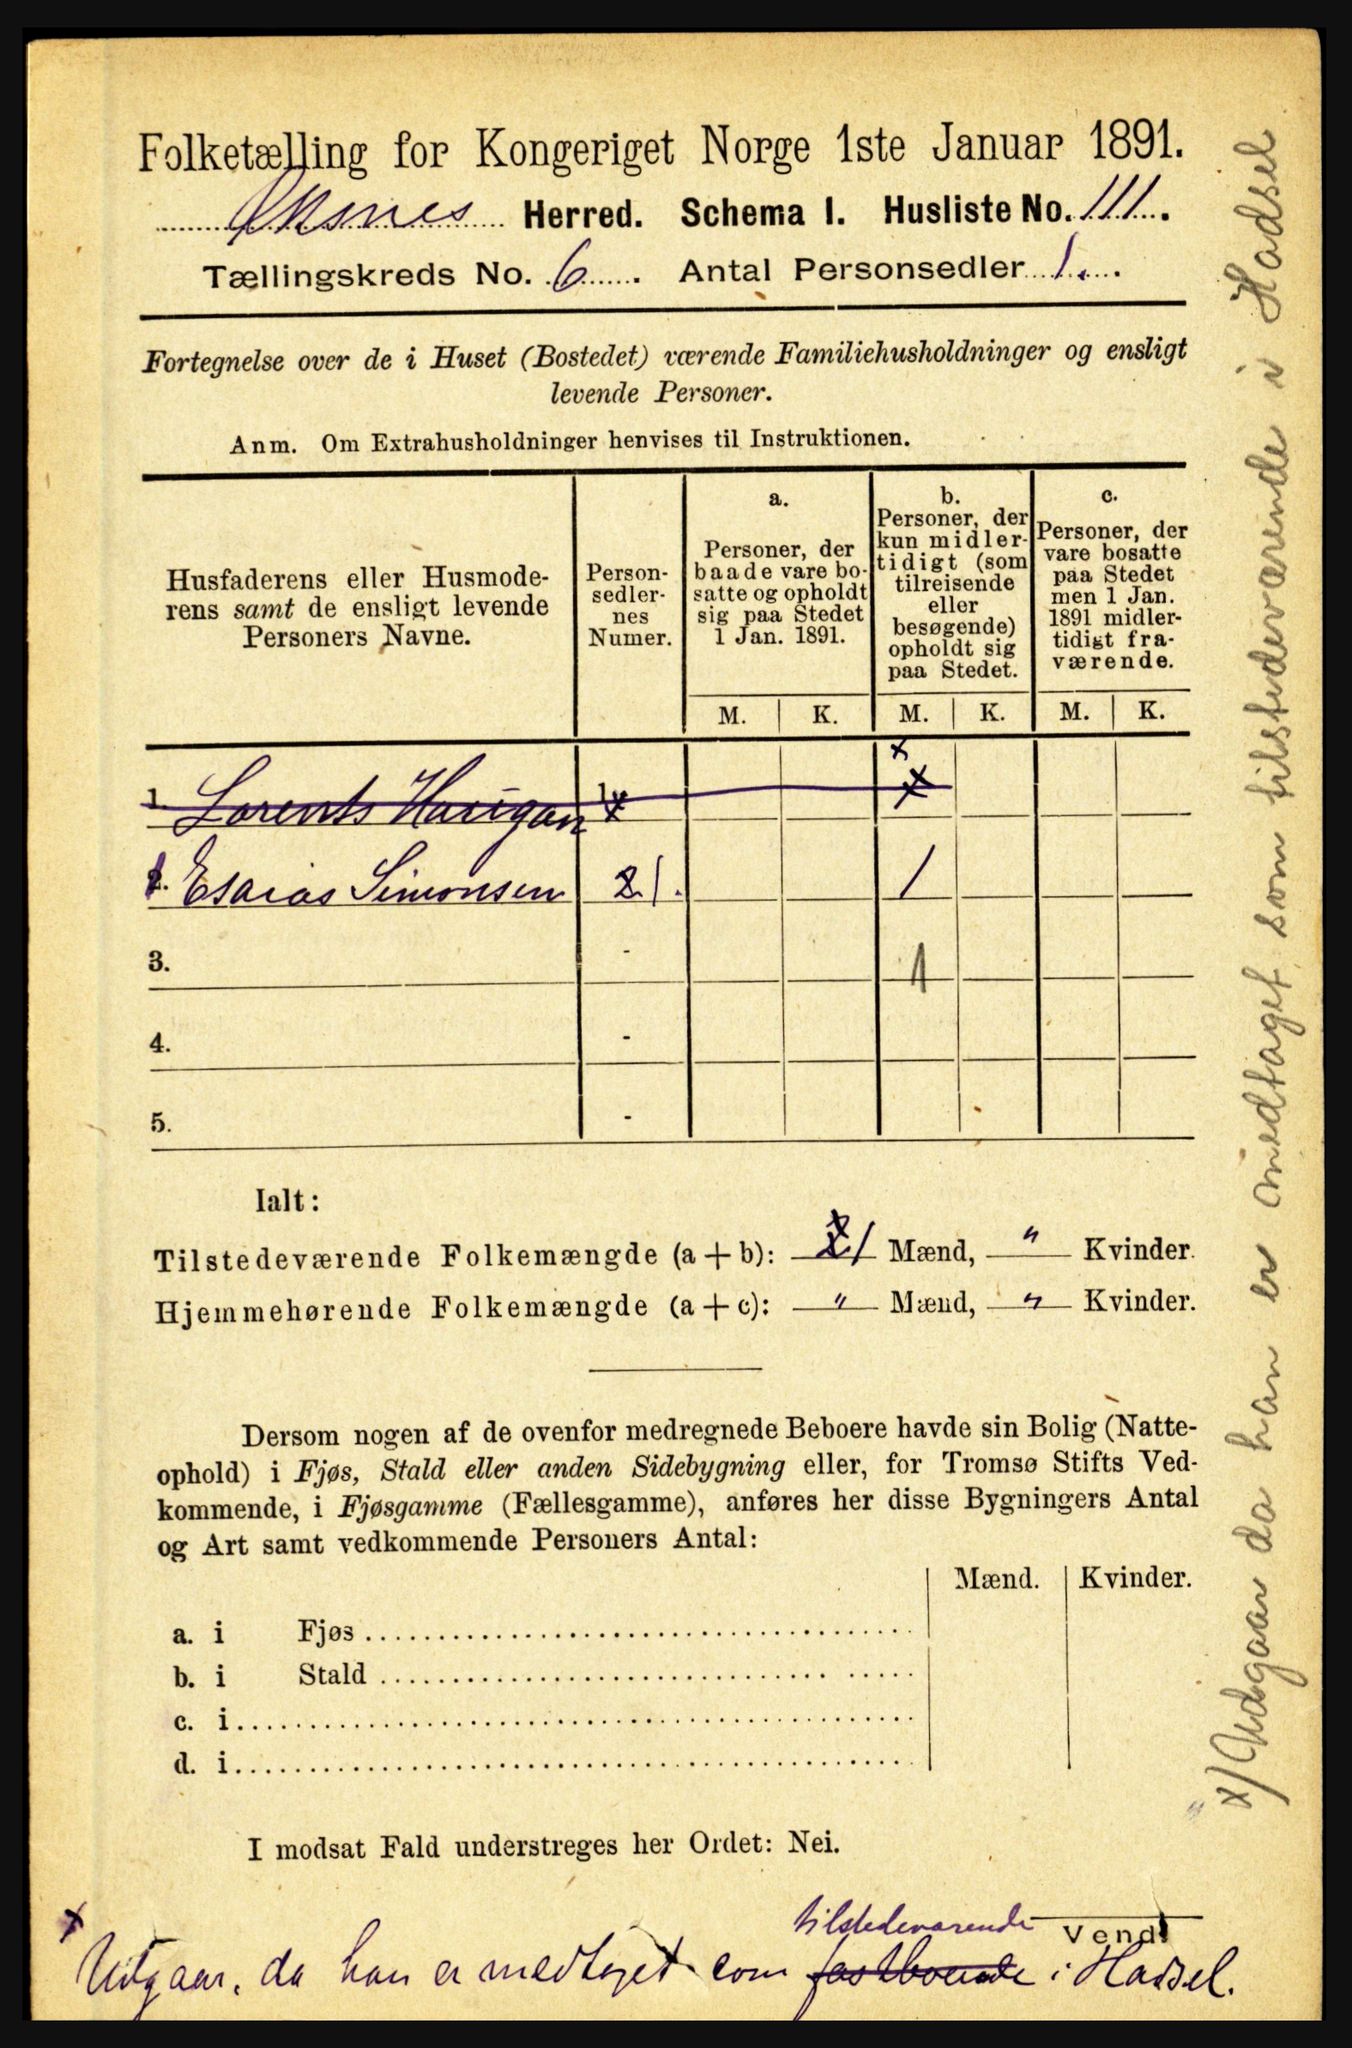 Folketælling for Kongeriget Norge 1ste Januar 1891.
Øksnes Herred. Schema I. Husliste No. 111.
Tællingskreds No. 6. Antal Personsedler 1.
Fortegnelse over de i Huset (Bostedet) værende Familiehusholdninger og ensligt
levende Personer.
Anm. Om Extrahusholdninger henvises til Instruktionen.
Husfaderens eller Husmode-
rens samt de ensligt levende
Personers Navne.
Person-
sedler-
nes
Numer.
a.
Personer, der
baade vare bo-
satte og opholdt
sig paa Stedet
1 Jan. 1891.
b.
Personer, der
kun midler-
tidigt (som
tilreisende
eller
besøgende)
opholdt sig
paa Stedet.
c.
Personer, der
vare bosatte
paa Stedet
men 1 Jan.
1891 midler-
tidigt fra-
værende.
M. K. M. K. M. K.
x
1. Lorents x
2. Esaias Simonsen 2 1. 1
3. - 1
4. -
5. -
Ialt:
Tilstedeværende Folkemængde (a + b): 2 1 Mænd, " Kvinder.
Hjemmehørende Folkemængde (a + c): " Mænd, " Kvinder.
Dersom nogen af de ovenfor medregnede Beboere havde sin Bolig (Natte-
ophold) i Fjøs, Stald eller anden Sidebygning eller, for Tromsø Stifts Ved-
kommende, i Fjøsgamme (Fællesgamme), anføres her disse Bygningers Antal
og Art samt vedkommende Personers Antal:
Mænd. Kvinder.
a. i Fjøs
b. i Stald
c. i
d. i
I modsat Fald understreges her Ordet: Nei.
Vend!
tilstedeværende
x Udgaar, da han er medtaget som fastboende i Hadsel.
x) Udgaar da han er medtaget som tilstedeværende i Hadsel